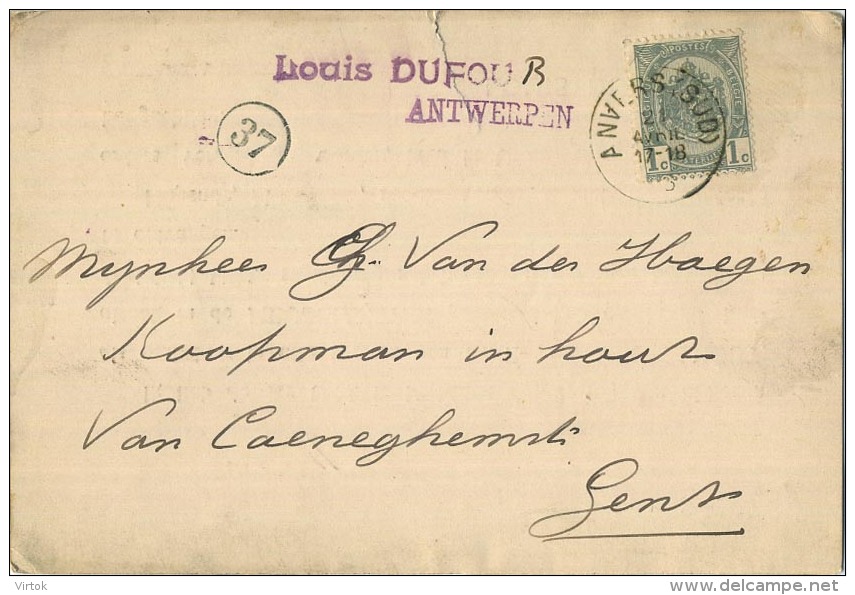 Louis DUFOUR
ANTWERPEN
37
POSTES
ANVERS (SUD)
21
AVRIL
17-18
3
1c 1c
Mynheer Ch. Van der Haegen
Koopman in hout
Van Caeneghemstr
Gent
Virtok
delcampe.net